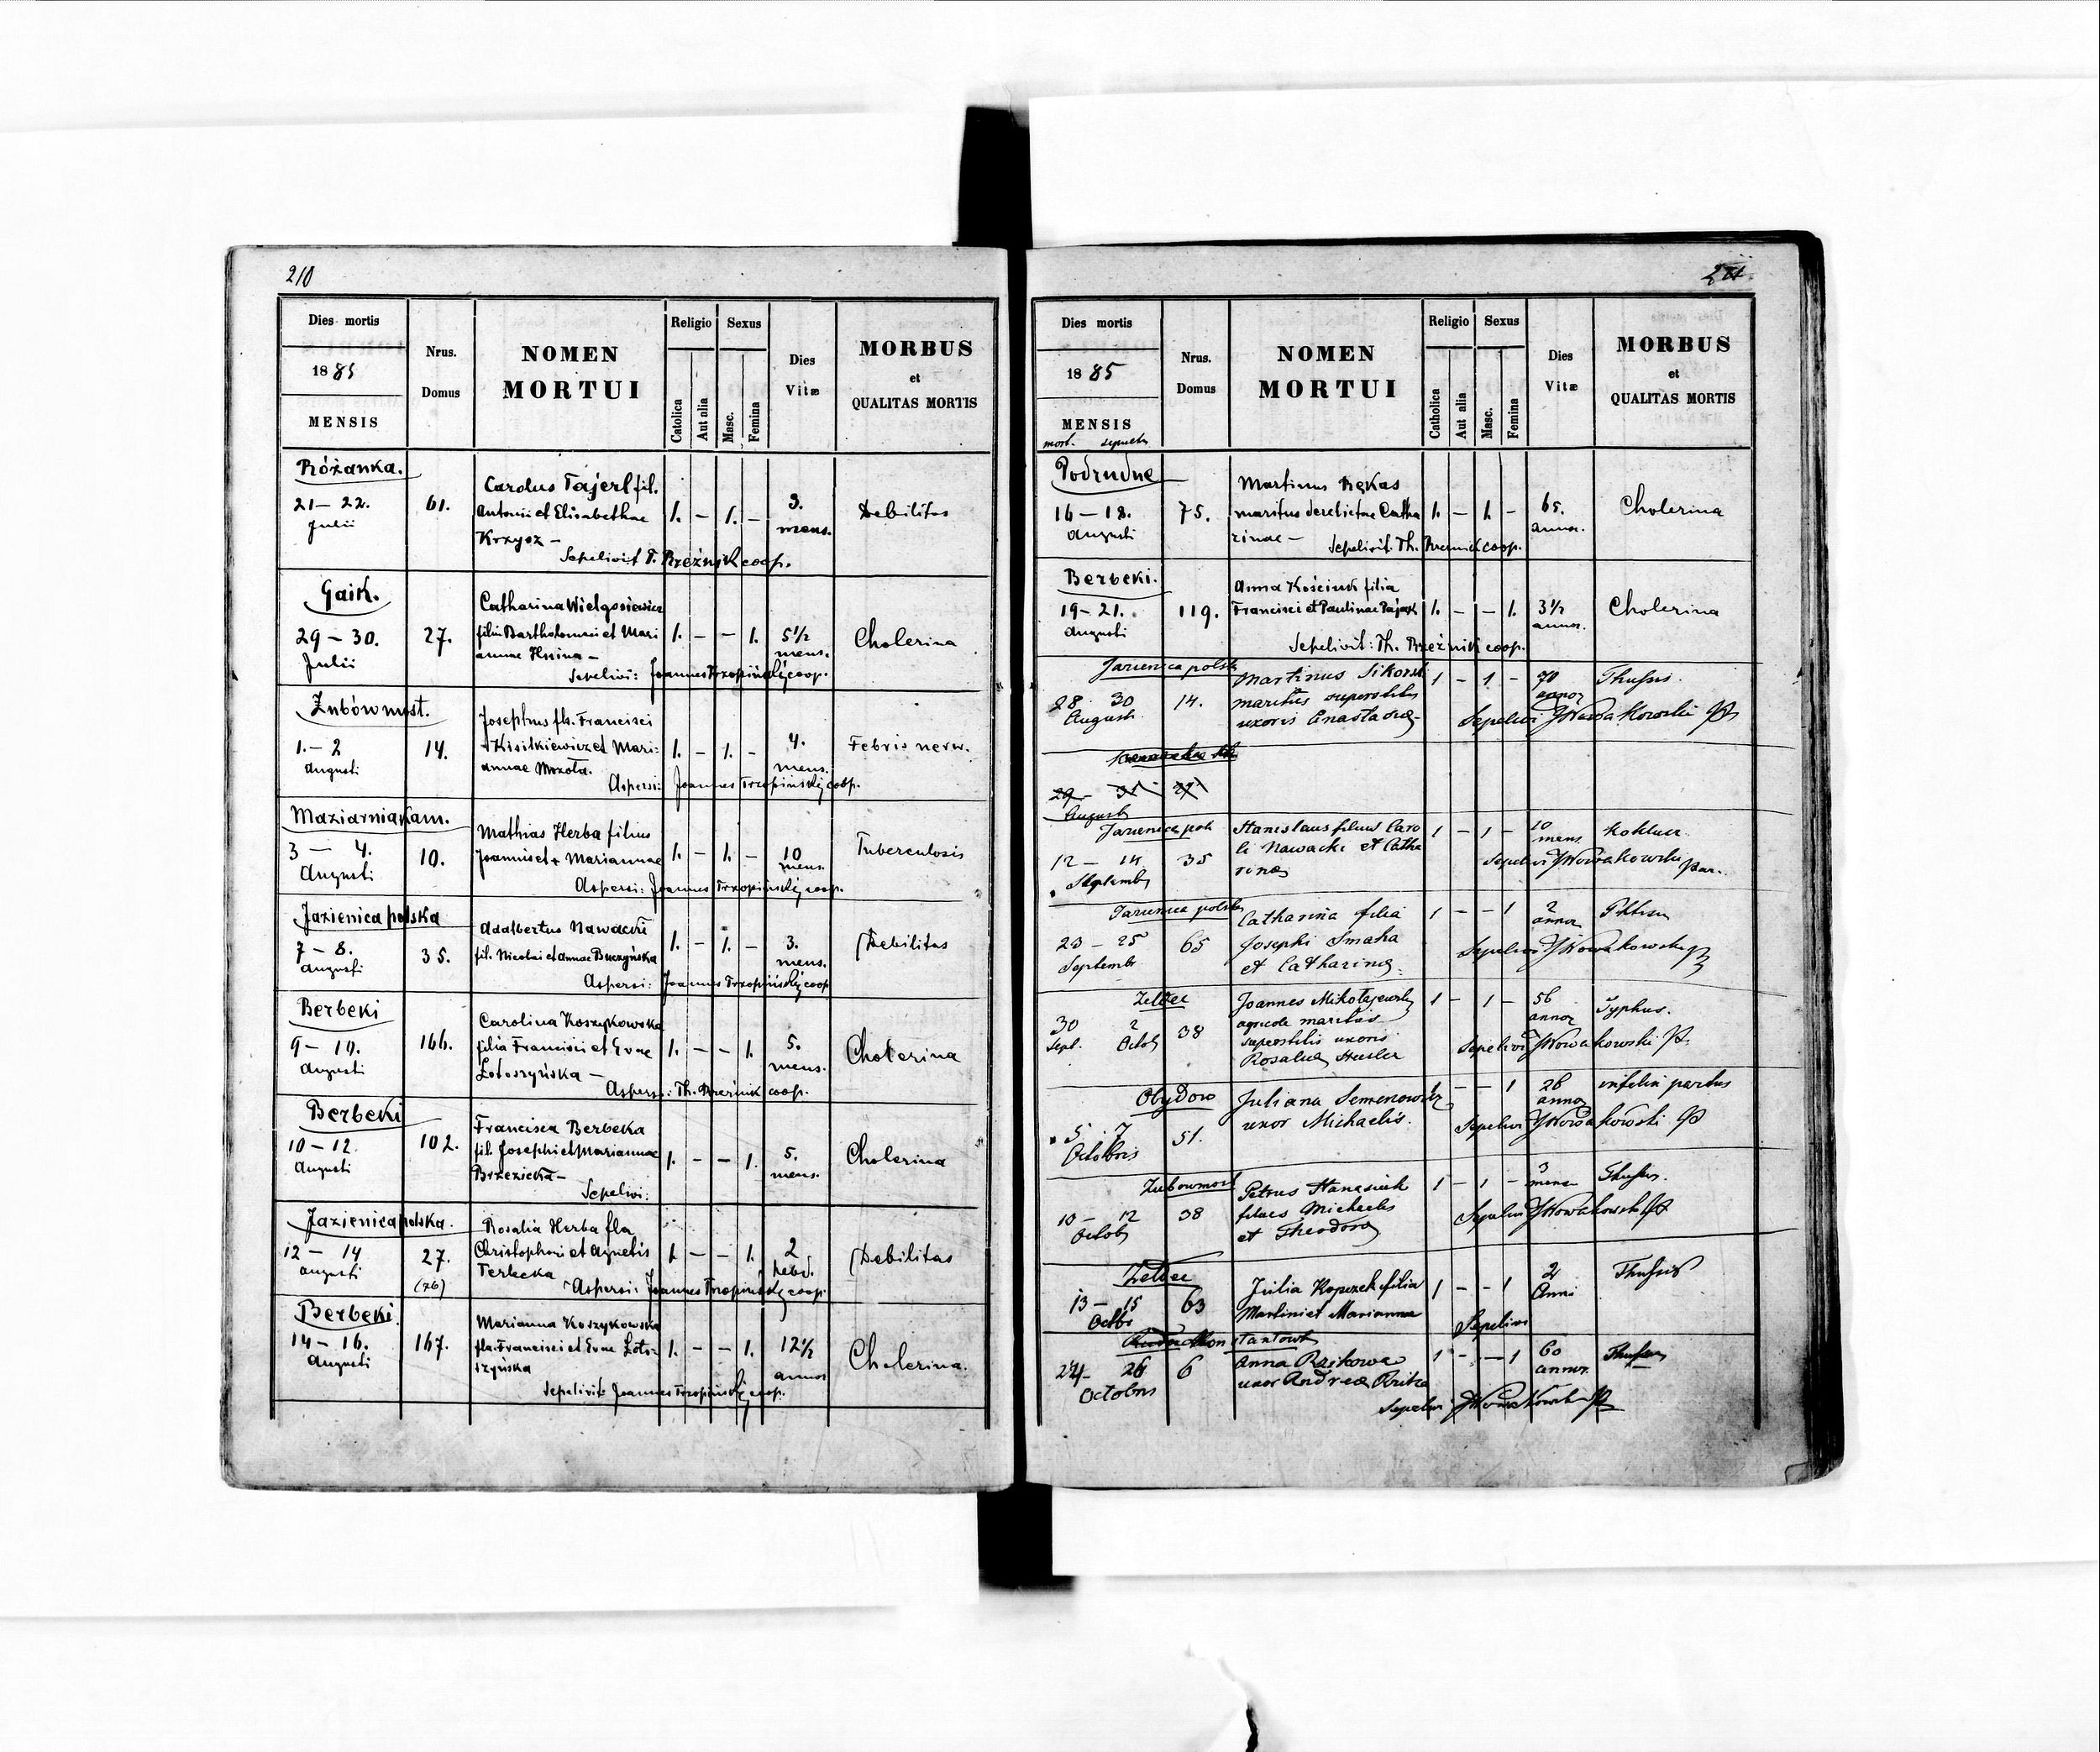 210
Dies mortis
1885
MENSIS
Nrus.
Domus
NOMEN
MORTUI
Religio
Sexus
Catolica
Aut alia
Masc.
Femina
Dies
Vitæ
MORBUS
et
QUALITAS MORTIS
Różanka.
21 – 22.
Julii
61.
Carolus Tajerl fil.
Antonii et Elisabethae
Krzysz –
1. – 1. –
3.
mens.
Debilitas
Sepelivit T. Brzeźnik coop.
Gaik.
29 – 30.
Julii
27.
Catharina Wielgosiewicz
filia Bartholomaei et Mari
annae –
1. – – 1.
5½
mens.
Cholerina
Sepelivi: Joannes Trzopiński coop.
Zubówmost.
1. – 2
Augusti
14.
Josephus fls. Francisci
Kisilkiewicz et Mari:
annae Mrzota.
1. – 1. –
4.
mens.
Febris nerv.
Aspersi: Joannes Trzopiński coop.
Maziarnia kam.
3 – 4.
Augusti
10.
Mathias Herba filius
Joannis et + Mariannae
1. – 1. –
10
mens.
Tuberculosis
Aspersi: Joannes Trzopiński coop.
Jazienica polska
7 – 8.
Augusti
35.
Adalbertus Nawacki
fil. Nicolai et Annae Buczyńska
1. – 1. –
3.
mens.
Debilitas
Aspersi: Joannes Trzopiński coop
Berbeki
9 – 10.
Augusti
166.
Carolina Koszykowska
filia Francisci et Evae
Łotoszyńska –
1. – – 1.
5.
mens.
Cholerina
Aspersi: Th. Brzeźnik coop.
Berbeki
10 – 12
Augusti
102.
Francisca Berbeka
fil. Josephi et Mariannae
Brzezicka –
1. – – 1.
5.
mens.
Cholerina
Sepelivi:
Jazienica polska.
12 – 14
Augusti
27.
(26)
Rosalia Herba fla
Christophori et Agnetis
Terlecka
1. – – 1.
2
hebd.
Debilitas
Aspersi: Joannes Trzopiński coop.
Berbeki.
14 – 16.
Augusti
167.
Marianna Koszykowska
fla. Francisci et Evae Łoto-
szyńska
1. – – 1.
12½
annor
Cholerina.
Sepelivit Joannes Trzopiński coop.
211
Dies mortis
1885
MENSIS
mort. sepult.
Nrus.
Domus
NOMEN
MORTUI
Religio
Sexus
Catholica
Aut alia
Masc.
Femina
Dies
Vitæ
MORBUS
et
QUALITAS MORTIS
Podrudne
16 – 18.
Augusti
75.
Martinus Rękas
maritus derelictae Catha
rinae –
1. – 1. –
65.
annor.
Cholerina
Sepelivit. Th. Brzeźnik coop.
Berbeki.
19 – 21.
Augusti
119.
Anna Kościuk filia
Francisci et Paulinae Pająk
1. – – 1.
3½
annor.
Cholerina
Sepelivit: Th. Brzeźnik coop.
Jazienica polsk
28 30
Augusti
14.
Martinus Sikorski
maritus superstitis
uxoris Anastasiae
1 – 1 –
70
annor
Thussis.
Sepelivi JNowakowski
29 – 31
Augusti
Jazienica pols
12 – 14
Septembr
35
Stanislaus filius Caro
li Nawacki et Catha
rinae
1 – 1 –
10
mens
Koklusz.
Sepelivi JNowakowski Par.
Jazienica polska
23 – 25
Septembr
65
Catharina filia
Josephi Smaha
et Catharinae
1 – – 1
2
annor
Phtisis
Sepelivi JNowakowski
Zeldec
30 2
Sept. Octob
38
Joannes Mikołajewski
agricola maritus
superstitis uxoris
Rosaliae
1 – 1 –
56
annor
Typhus.
Sepelivi JNowakowski P.
Obydow
5 . 7
Octobris
51.
Juliana Semenowicz
uxor Michaelis.
– – 1
26
annor
infelix partus
Sepelivi JNowakowski
Zubowmost
10 – 12
Octob
38
Petrus Hanasiuk
filius Michaelis
et Theodora
1 – 1 –
3
mens
Thussis.
Sepelivi JNowakowski
Zeldec
13 – 15
Octbr
63
Julia Kopczek filia
Martini et Marianna
1 – – 1
2
Anni
Thussis
Sepelivi
24 – 26
Octobris
6
Anna Rzikowa
uxor Andreae
1 – – 1
60
annor.
Thussis
Sepelivi JNowakowski